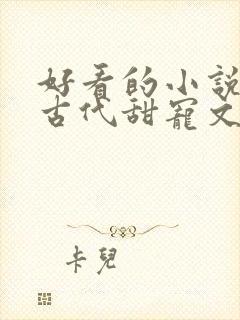 好看的小說
古代甜寵文
卡兒